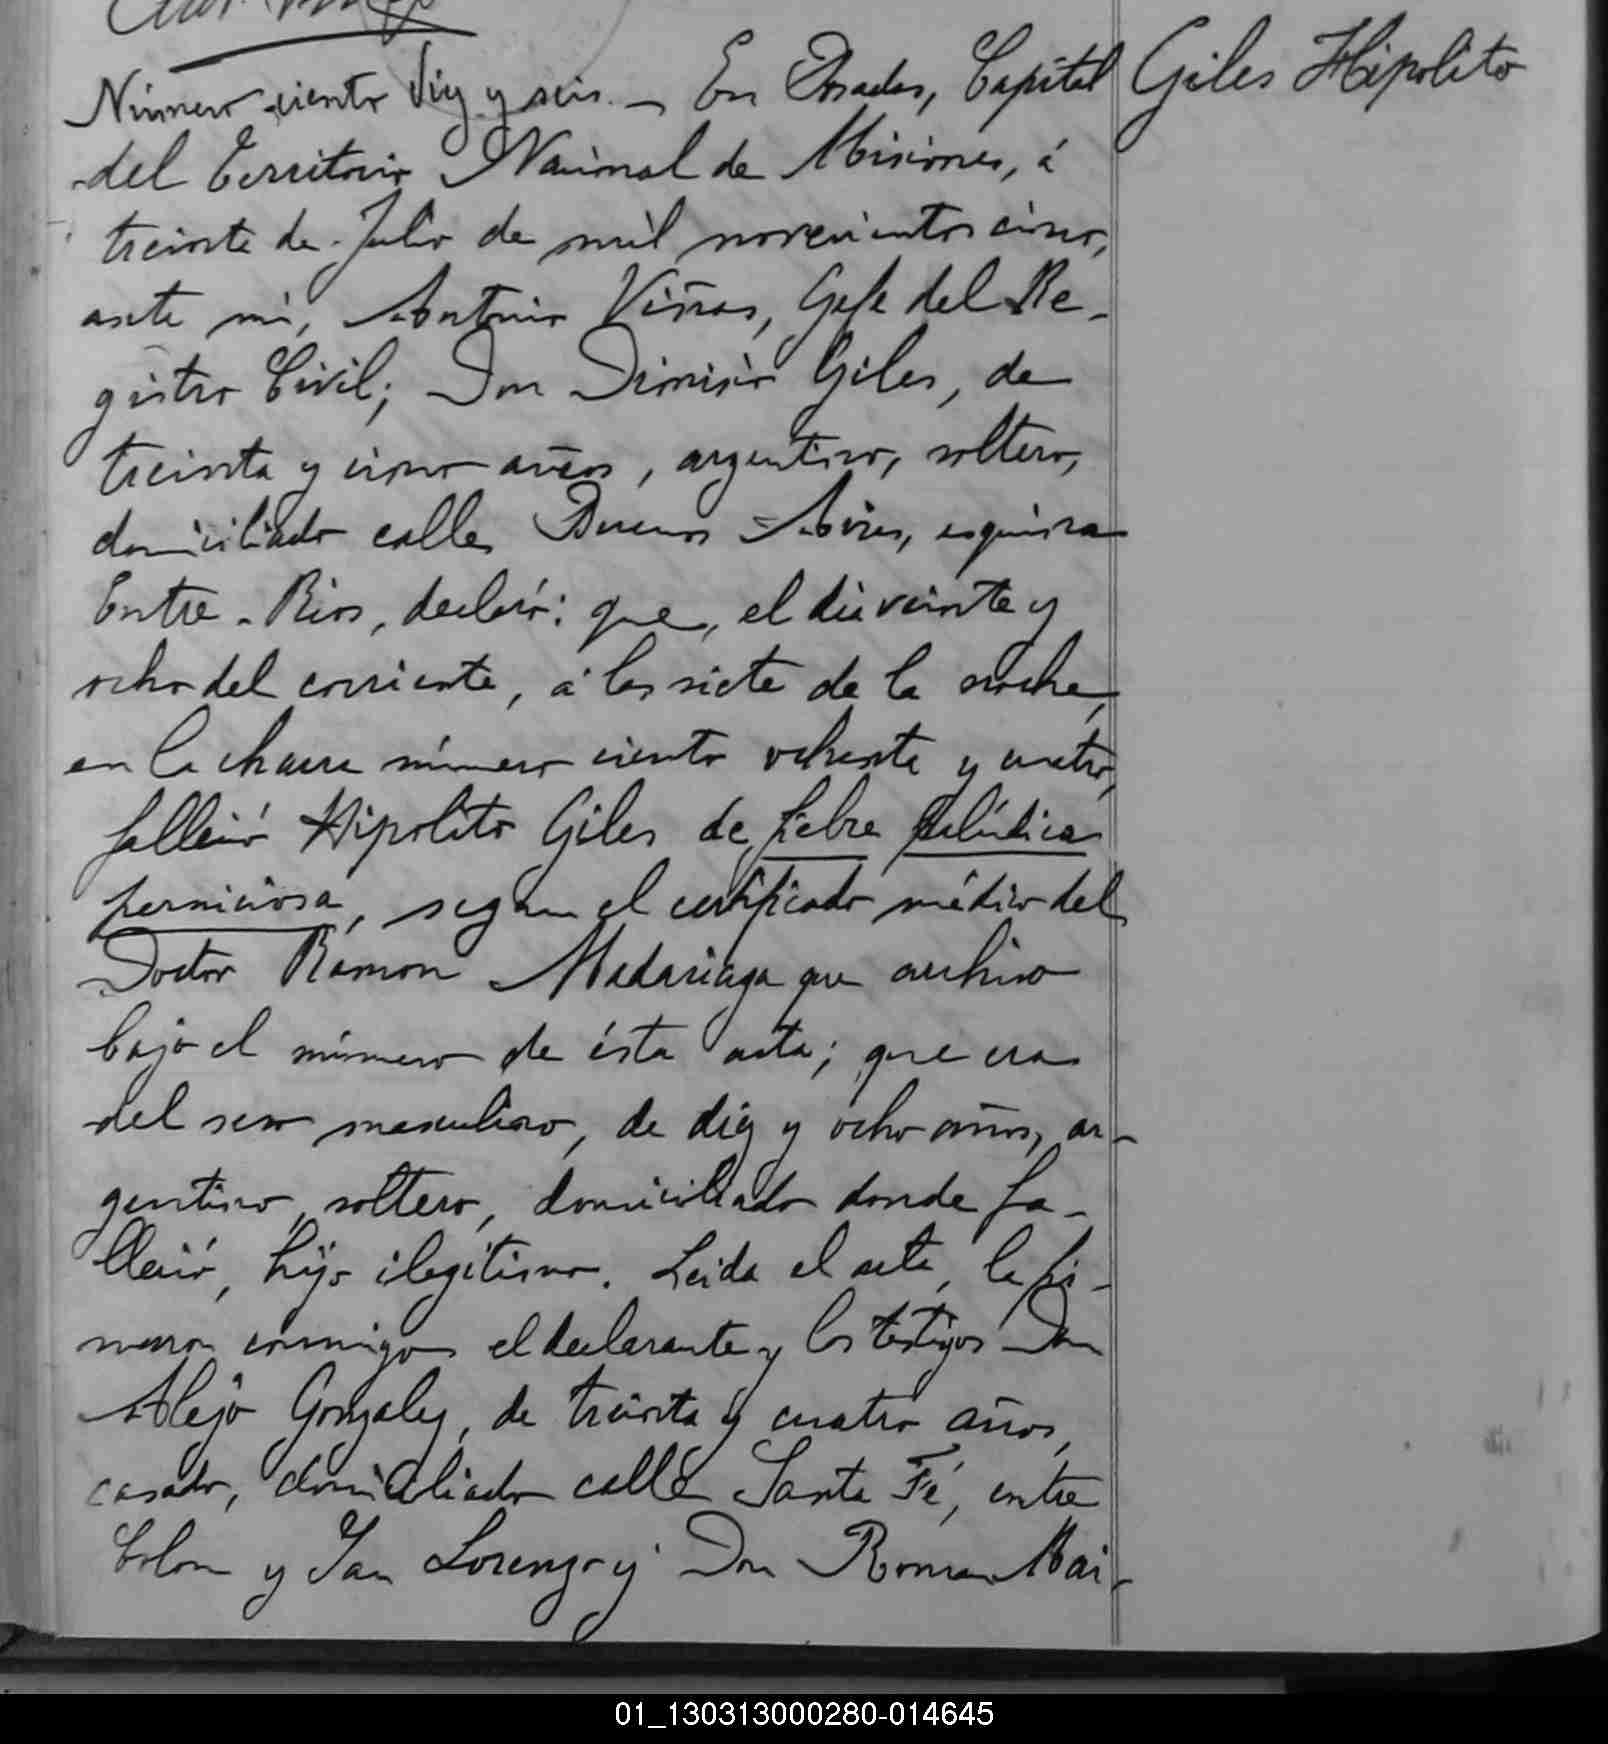 Número ciento diez y seis. — En Posadas, Capital
Giles Hipolito
del Territorio Nacional de Misiones, á
treinta de Julio de mil novecientos cinco,
ante mi, Antonio Viñas, Gefe del Re-
gistro Civil; Don Dionisio Giles, de
treinta y cinco años, argentino, soltero,
domiciliado calle Buenos Aires, esquina
Entre-Rios, declaró: que, el dia veinte y
ocho del corriente, á las siete de la noche,
en la chacra número ciento ochenta y cuatro,
falleció Hipolito Giles de fiebre palúdica
perniciosa, segun el certificado médico del
Doctor Ramon Madariaga que archivo
bajo el número de ésta acta; que era
del sexo masculino, de diez y ocho años, ar-
gentino, soltero, domiciliado donde fa-
lleció, hijo ilegitimo. Leida el acta, la fir-
maron conmigo el declarante y los testigos Don
Alejo Gonzalez, de treinta y cuatro años,
casado, domiciliado calle Santa Fé, entre
Colon y San Lorenzo y Don Roman Mai-
01_130313000280-014645